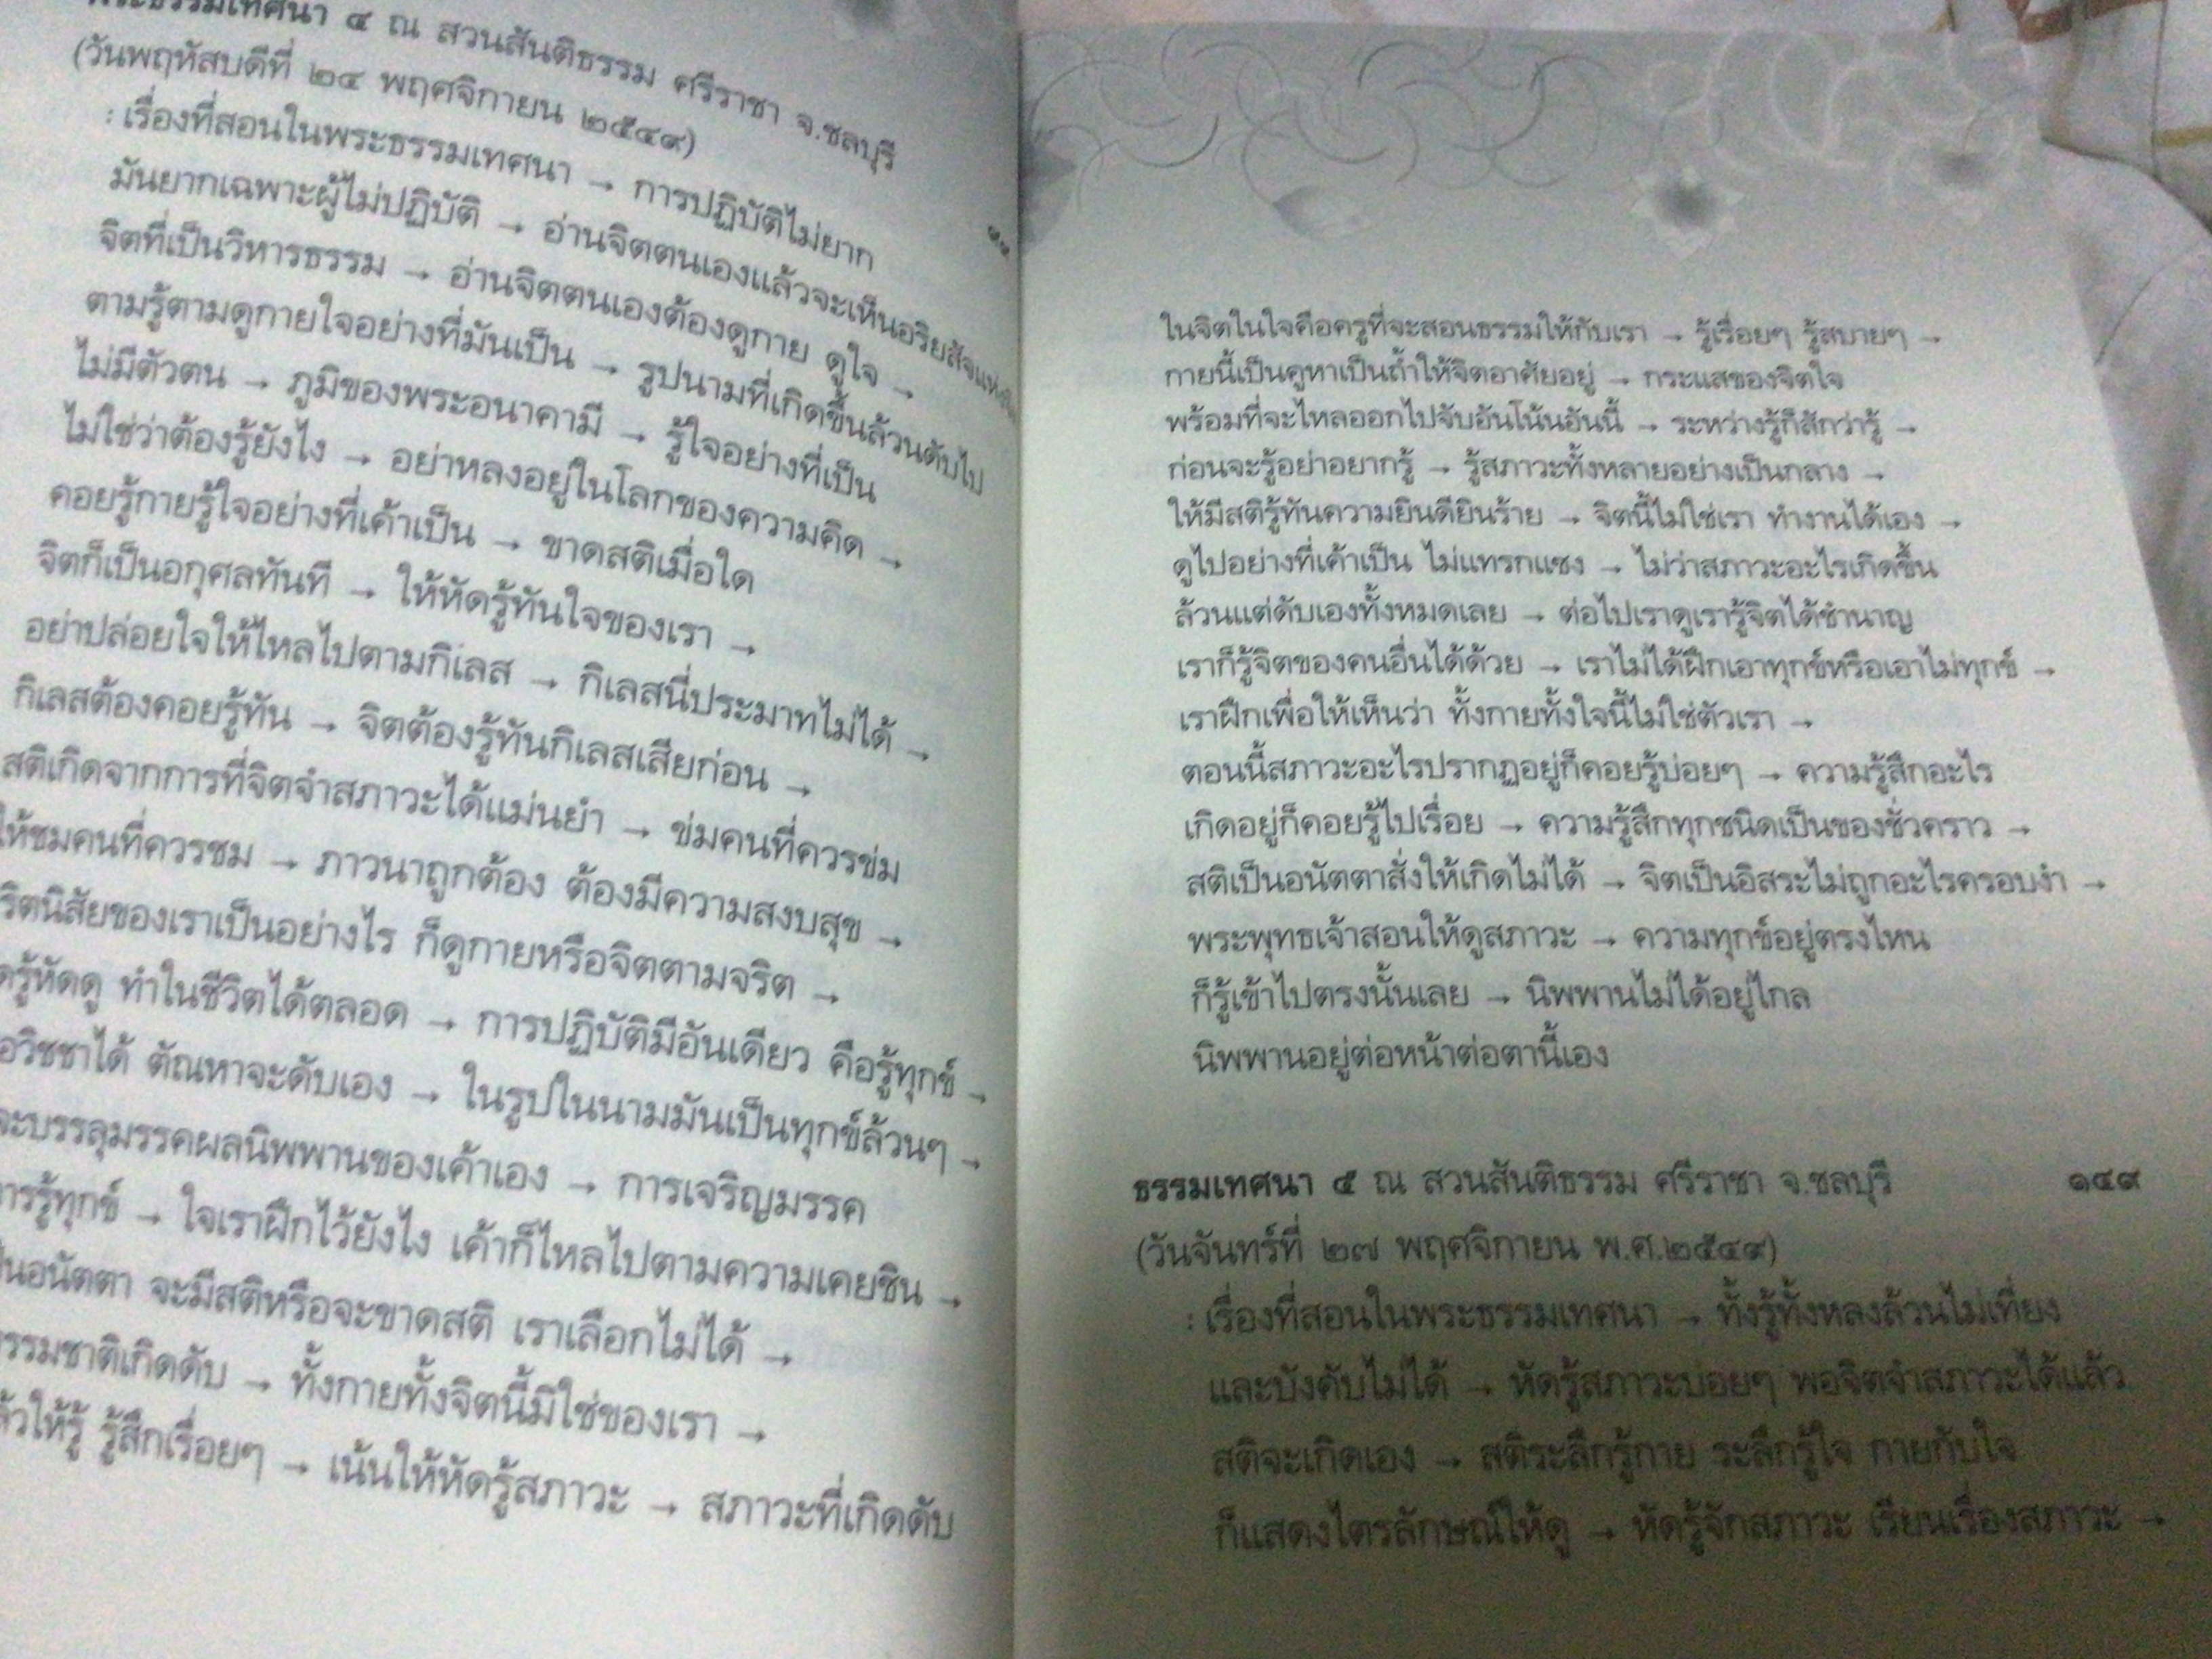 พระธรรมเทศนา ๔ ณ สวนสันติธรรม ศรีราชา จ.ชลบุรี
(วันพฤหัสบดีที่ ๒๔ พฤศจิกายน ๒๕๔๙)
: เรื่องที่สอนในพระธรรมเทศนา → การปฏิบัติไม่ยาก
มันยากเฉพาะผู้ไม่ปฏิบัติ → อ่านจิตตนเองแล้วจะเห็นอริยสัจแห่ง
จิตที่เป็นวิหารธรรม → อ่านจิตตนเองต้องดูกาย ดูใจ →
ตามรู้ตามดูกายใจอย่างที่มันเป็น → รูปนามที่เกิดขึ้นล้วนดับไป
ไม่มีตัวตน → ภูมิของพระอนาคามี → รู้ใจอย่างที่เป็น
ไม่ใช่ว่าต้องรู้ยังไง → อย่าหลงอยู่ในโลกของความคิด →
คอยรู้กายรู้ใจอย่างที่เค้าเป็น → ขาดสติเมื่อใด
จิตก็เป็นอกุศลทันที → ให้หัดรู้ทันใจของเรา →
อย่าปล่อยใจให้ไหลไปตามกิเลส → กิเลสนี่ประมาทไม่ได้ →
กิเลสต้องคอยรู้ทัน → จิตต้องรู้ทันกิเลสเสียก่อน →
สติเกิดจากการที่จิตจำสภาวะได้แม่นยำ → ข่มคนที่ควรข่ม
ให้ชมคนที่ควรชม → ภาวนาถูกต้อง ต้องมีความสงบสุข →
ริตนิสัยของเราเป็นอย่างไร ก็ดูกายหรือจิตตามจริต →
รู้หัดดู ทำในชีวิตได้ตลอด → การปฏิบัติมีอันเดียว คือรู้ทุกข์ →
อวิชชาได้ ตัณหาจะดับเอง → ในรูปในนามมันเป็นทุกข์ล้วนๆ →
จะบรรลุมรรคผลนิพพานของเค้าเอง → การเจริญมรรค
การรู้ทุกข์ → ใจเราฝึกไว้ยังไง เค้าก็ไหลไปตามความเคยชิน →
เป็นอนัตตา จะมีสติหรือจะขาดสติ เราเลือกไม่ได้ →
ธรรมชาติเกิดดับ → ทั้งกายทั้งจิตนี้มิใช่ของเรา →
ให้รู้ รู้สึกเรื่อยๆ → เน้นให้หัดรู้สภาวะ → สภาวะที่เกิดดับ
ในจิตในใจคือครูที่จะสอนธรรมให้กับเรา → รู้เรื่อยๆ รู้สบายๆ →
กายนี้เป็นคูหาเป็นถ้ำให้จิตอาศัยอยู่ → กระแสของจิตใจ
พร้อมที่จะไหลออกไปจับอันโน้นอันนี้ → ระหว่างรู้ก็สักว่ารู้ →
ก่อนจะรู้อย่าอยากรู้ → รู้สภาวะทั้งหลายอย่างเป็นกลาง →
ให้มีสติรู้ทันความยินดียินร้าย → จิตนี้ไม่ใช่เรา ทำงานได้เอง →
ดูไปอย่างที่เค้าเป็น ไม่แทรกแซง → ไม่ว่าสภาวะอะไรเกิดขึ้น
ล้วนแต่ดับเองทั้งหมดเลย → ต่อไปเราดูเรารู้จิตได้ชำนาญ
เราก็รู้จิตของคนอื่นได้ด้วย → เราไม่ได้ฝึกเอาทุกข์หรือเอาไม่ทุกข์ →
เราฝึกเพื่อให้เห็นว่า ทั้งกายทั้งใจนี้ไม่ใช่ตัวเรา →
ตอนนี้สภาวะอะไรปรากฏอยู่ก็คอยรู้บ่อยๆ → ความรู้สึกอะไร
เกิดอยู่ก็คอยรู้ไปเรื่อย → ความรู้สึกทุกชนิดเป็นของชั่วคราว →
สติเป็นอนัตตาสั่งให้เกิดไม่ได้ → จิตเป็นอิสระไม่ถูกอะไรครอบงำ →
พระพุทธเจ้าสอนให้ดูสภาวะ → ความทุกข์อยู่ตรงไหน
ก็รู้เข้าไปตรงนั้นเลย → นิพพานไม่ได้อยู่ไกล
นิพพานอยู่ต่อหน้าต่อตานี้เอง
ธรรมเทศนา ๕ ณ สวนสันติธรรม ศรีราชา จ.ชลบุรี ๑๔๙
(วันจันทร์ที่ ๒๗ พฤศจิกายน พ.ศ.๒๕๔๙)
: เรื่องที่สอนในพระธรรมเทศนา → ทั้งรู้ทั้งหลงล้วนไม่เที่ยง
และบังคับไม่ได้ → หัดรู้สภาวะบ่อยๆ พอจิตจำสภาวะได้แล้ว
สติจะเกิดเอง → สติระลึกรู้กาย ระลึกรู้ใจ กายกับใจ
ก็แสดงไตรลักษณ์ให้ดู → หัดรู้จักสภาวะ เรียนเรื่องสภาวะ →